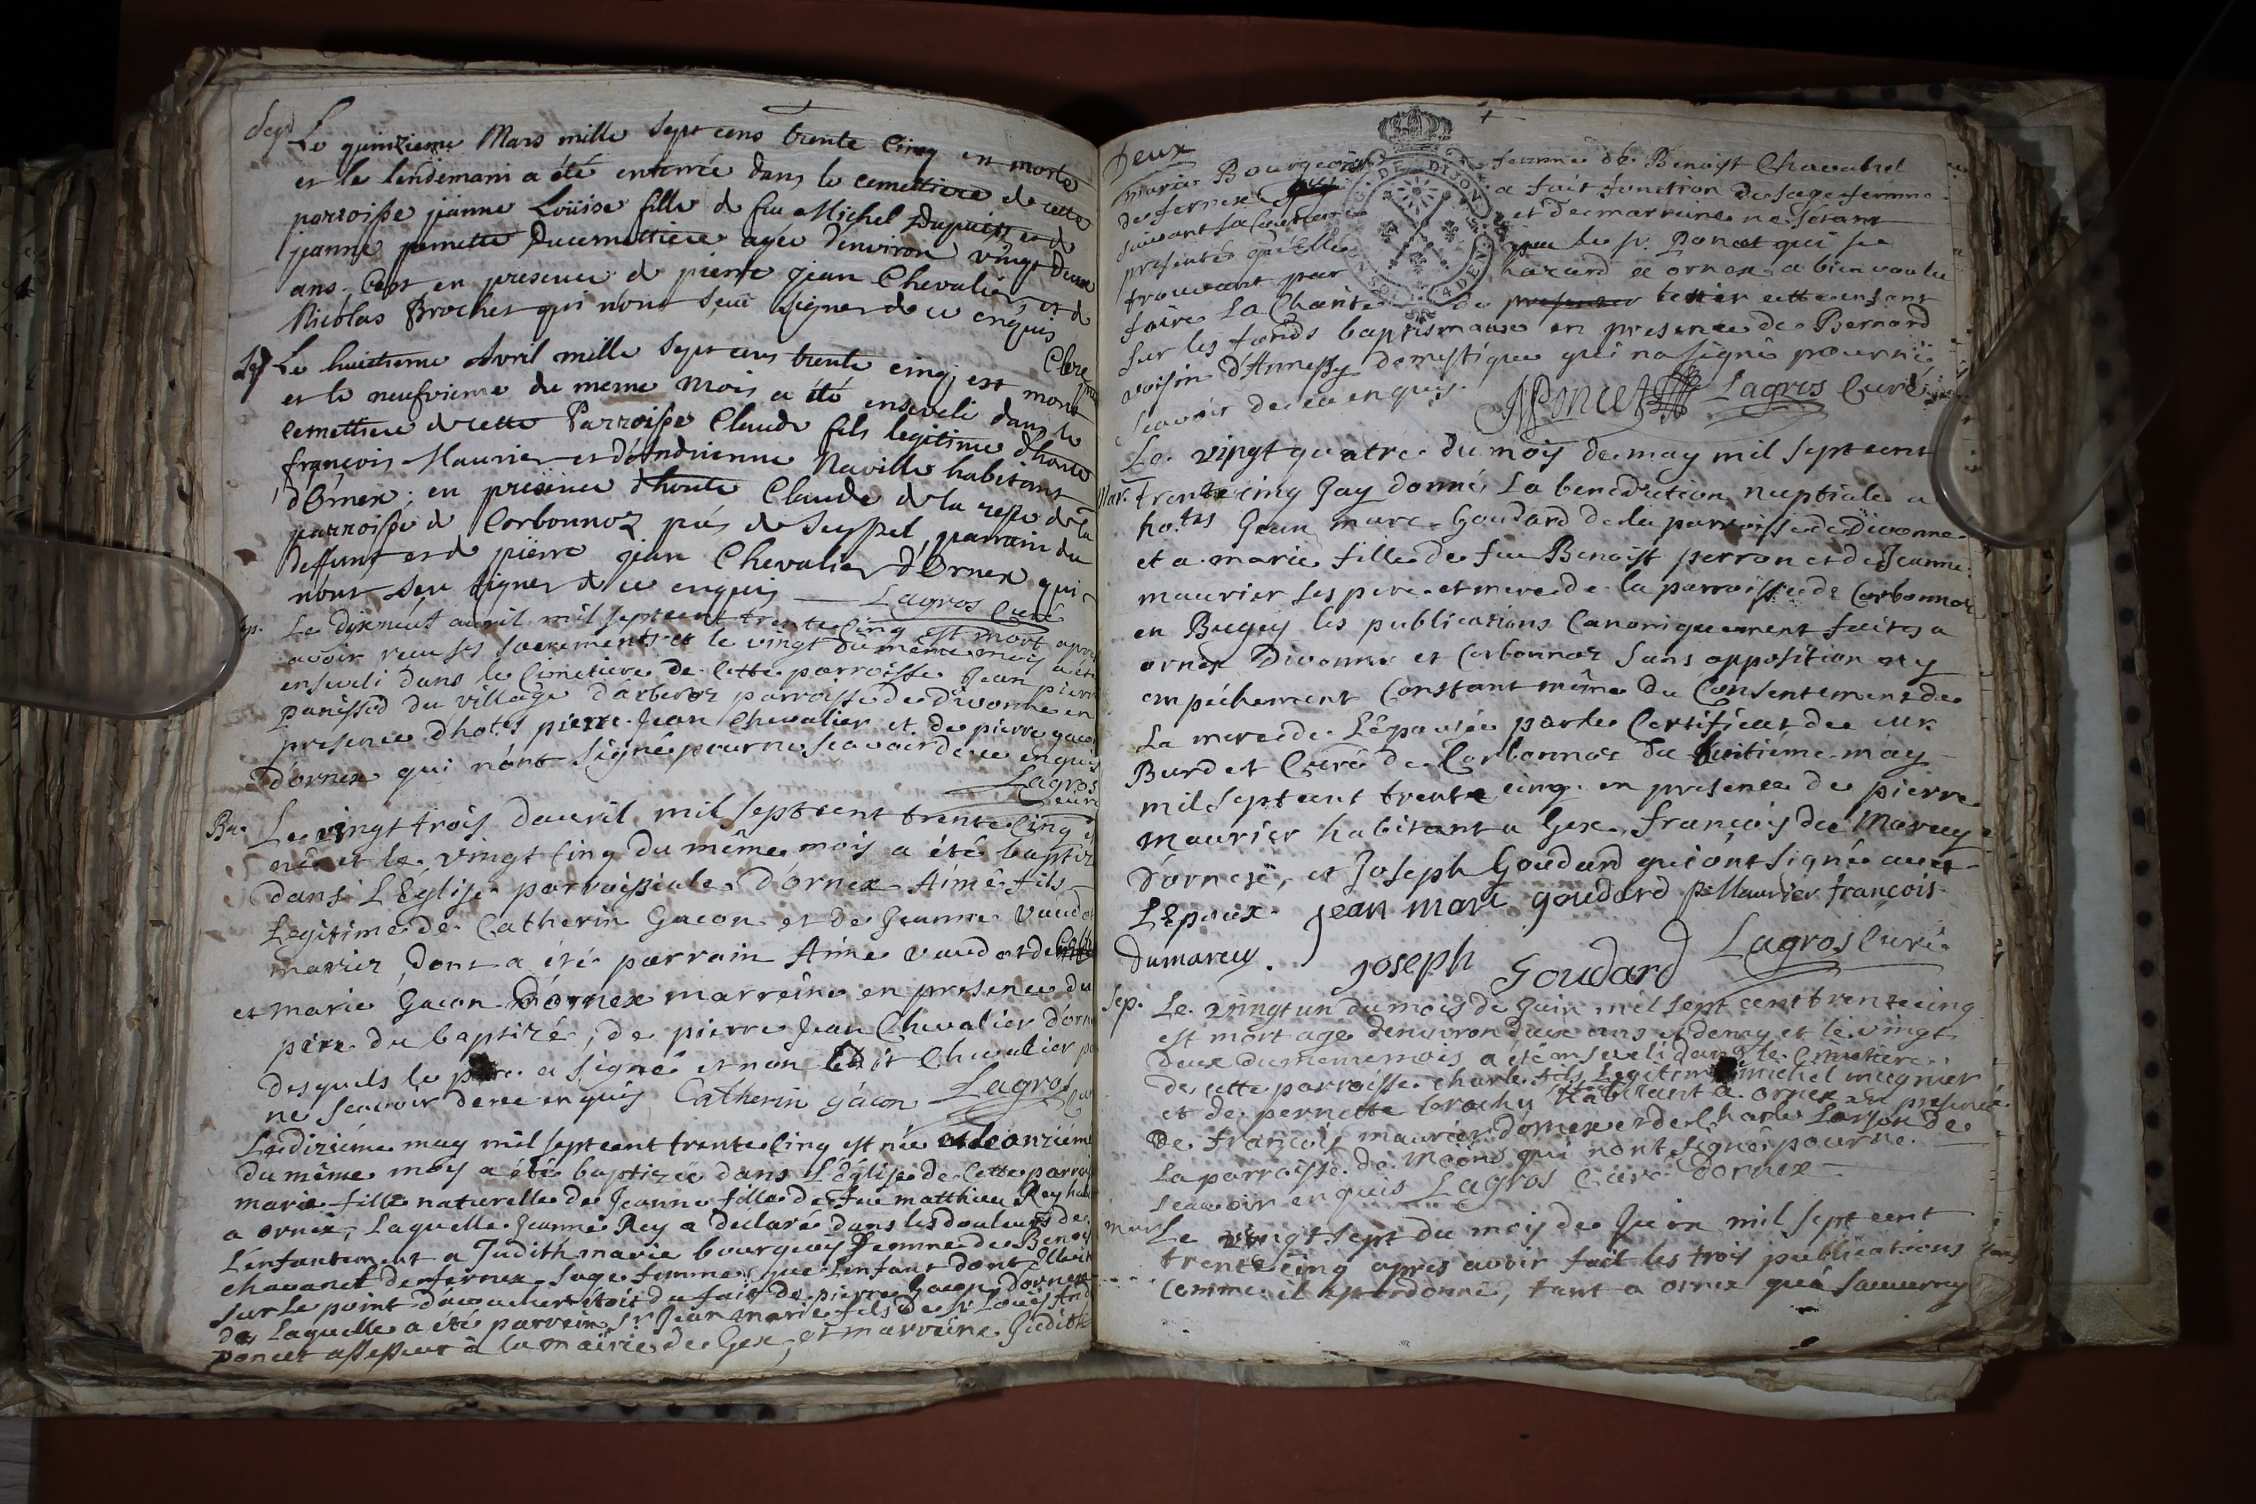 Sep
Le quinzieme Mars mille sept cens trente Cinq est morte
et le lendemain a été enterrée dans le cemettiere de cette
parroisse jeanne Loüise fille de feu Michel Dupuis et de
jeanne pernette Ducemettiere agée d'environ vingt deux
ans. C'est en presence de pierre jean Chevalier, et de
Nicolas Brochet qui n'ont sçeu signer de ce enquis
Sep
Le huitieme Avril mille sept cens trente cinq, est mort
et le neufvieme du meme mois a été enseveli dans le
cemettiere de cette Parroisse Claude fils legitime d'honte
françois Maurier et d'Andrienne Naville habitans
d'Ornex: en presence d'honte Claude de la
parroisse de Corbonnoz prés de Seyssel, parrain du
deffunt et de pierre jean Chevalier d'Ornex qui
n'ont sçeu signer de ce enquis Lagros Curé
Sep.
Le dixneuf avril mil septcent trente cinq est mort apres
avoir receu ses sacrements et le vingt du même moy a été
enseveli dans le Cimetiere de cette parroisse Jean pierre
panissod du village darbere parroisse de Divonne en
presence dho.tes pierre Jean Chevalier et de pierre gacon
dornex qui n'ont signé pour ne sçavoir de ce enquis
Lagros
Curé
Ba.
Le vingt trois d'avril mil septcent trente cinq est
né et le vingt cinq du même mois a été baptizé
dans L'Église parroissiale d'ornex Aimé fils
Legitime de Catherin Gacon et de Jeanne Vaudot
mariez, dont a été parrain Aimé Vaudot de
et marie Gacon d'ornex marreine en presence du
père du baptizé, de pierre Jean Chevalier d'ornex
desquels le pere a signé et non ledit Chevalier pour
ne scavoir de ce enquis Catherin gacon Lagros Curé
Le dizieme may mil septcent trente cinq est née et le onzieme
du même moy a été baptizée dans L'Église de cette parroisse
marie fille naturelle de Jeanne fille de feu matthieu Rey
a ornex, Laquelle Jeanne Rey a declaré dans les douleurs de
L'enfantement a Judith marie bourgeois femme de Benoist
chavanel de fernex sage femme que l'enfant dont Elle étoit
sur Le point d'acoucher étoit du fait de pierre Gacon d'ornex
de Laquelle a été parrain Sr Jean marie fils de Sr Louis
poncet assesseur à la mairie de Gex, et marreine Judith
Deux
marie Bourgeois femme de Benoist Chavanel
de fernex a fait fonction de sage femme
suivant sa Coutume et de marreine ne s'etant
presentée qu'Elle que le sr. Poncet qui se
trouvant par hazard a ornex a bien voulu
faire La Charité de tenir cette enfant
sur les fonds baptismaux en presence de Bernard
voisin d'Annessy domestique qui n'a signé pour ne
scavoir de ce enquis. Poncet Lagros Curé
Mar.
Le vingt quatre du mois de may mil sept cent
trente cinq J'ay donné La benediction nuptiale a
ho.tes Jean marc Goudard de la parroisse de Divonne
et a marie fille de feu Benoist perron et de Jeanne
maurier ses pere et mere de la parroisse de Corbonnoz
en Bugey les publications Canoniquement faites a
ornex Divonne et Corbonnoz sans opposition ny
empéchement Constant même du Consentement de
La mere de L'épousée par le Certificat de mr.
Burdet Curé de Corbonnoz du huitième may
mil septcent trente cinq. en presence de pierre
maurier habitant a Gex, françois du Marcey
d'ornex, et Joseph Goudard qui ont signé avec
L'Époux. Jean marc goudard p: Maurier françois
dumarcey. Joseph Goudard Lagros Curé
Sep.
Le vingt un du mois de Juin mil sept cent trente cinq
est mort agé denviron deux ans et demy et le vingt
deux du meme mois a été enseveli dans le Cimetiere
de cette parroisse charle fils Legitime michel meynier
et de pernette brochu habitant a ornex en presence
de François maurier d'ornex et de Charle Larson de
La parroisse de Moëns qui n'ont signé pour ne
scavoir enquis Lagros Curé d'ornex
mar
Le vingt sept du mois de Juin mil sept cent
trente cinq apres avoir fait les trois publications
comme il est ordonné, tant a ornex qu'a Sauverny